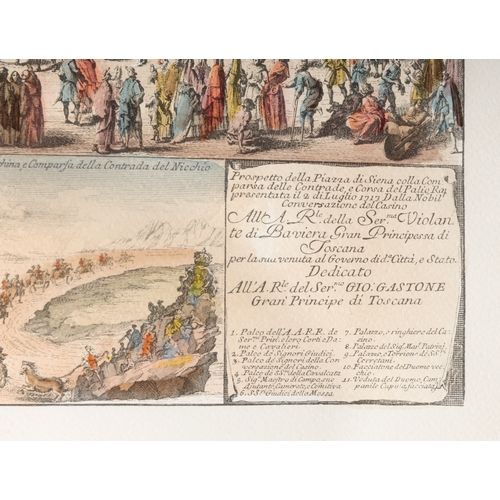 china, e Comparsa della Contrada del Nicchio
Prospetto della Piazza di Siena colla Com
parsa delle Contrade, e Corsa del Palio Rap
presentata il 2 di Luglio 1717 Dalla Nobil'
Conversazione del Casino
All'A. Rle. della Ser.ma Violan
te di Baviera Gran Principessa di
Toscana
per la sua venuta al Governo di da. Città, e Stato
Dedicato
All'A. Rle del Ser.me GIO: GASTONE
Gran Principe di Toscana
1. Palco dell'A.A.R.R. de
Ser.mi Prin. e loro Corti e Da
me e Cavalieri.
2. Palco de Signori Giudici.
3. Palco de Signori della Con
versazione del Casino.
4. Palco de SS.ri della Cavalcata
5. Sig.r Maestro di Campo suo
Aiutante, Camerate, e Comitiva
6. SS.ri Giudici della Mossa
7. Palazzo, e ringhiero del Ca
sino.
8. Palazzo del Sig.r Mar. Patrizj
9. Palazzo, e Torrione di SS.ri
Cerretani.
10. Facciatone del Duomo vec
chio.
11. Veduta del Duomo, Cam
panile Cupola, facciata